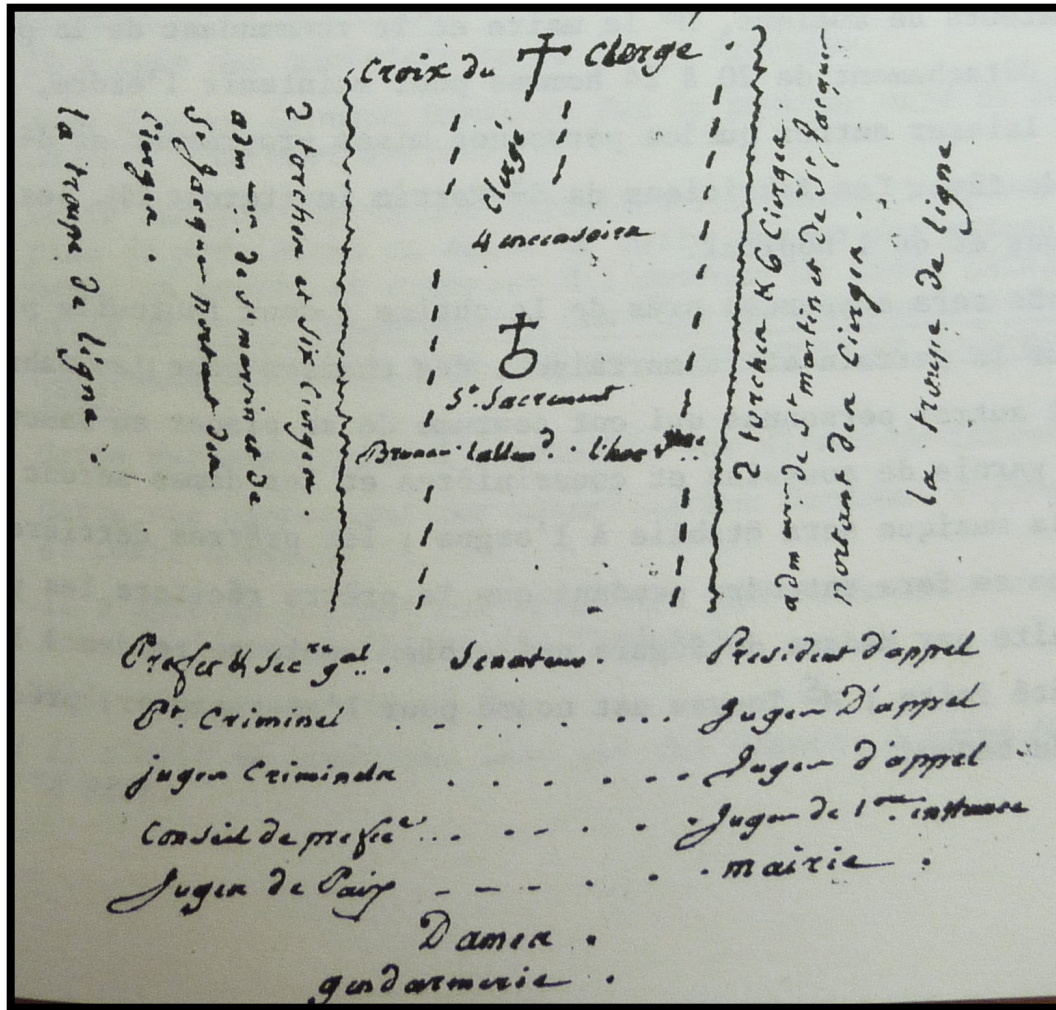 Croix du Clergé
Clergé
4 encensoirs
St. Sacrement
2 torches et six Cierges.
adm.on de St martin et de
St Jaques portant des
Cierges.
la troupe de ligne.
2 torches & 6 Cierges
adm.on de St martin et de St Jacques
portant des Cierges.
la troupe de ligne
Prefet & Secre. gal. Senateur. President d'appel
Pt. Criminel . - . - . . Juges D'appel
juges Criminels . . . - . . . Juges d'appel
Conseil de prefece. . . - . - . . . Juges de 1ere. instance
Juges de Paix - - - . . . . mairie .
Dames .
gendarmerie .